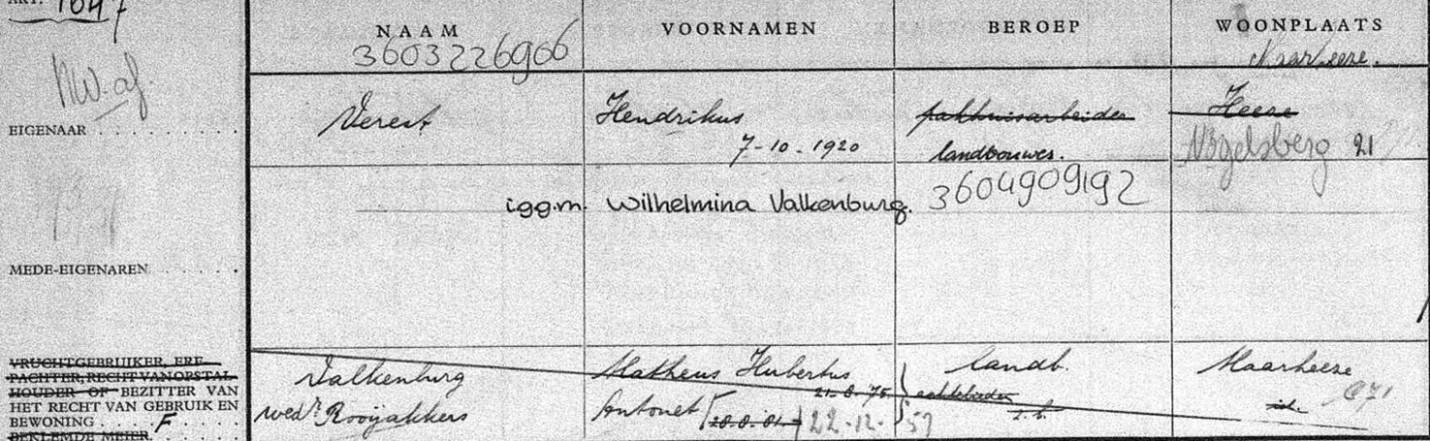 ART. 1647
NAAM VOORNAMEN BEROEP WOONPLAATS
3603226906 Maarheeze.
NW. af.
EIGENAAR Verest Hendrikus pakhuisarbeider Heeze
7-10-1920 landbouwer. Vogelsberg 21
i.g.g.m. Wilhelmina Valkenburg. 3604909192
MEDE-EIGENAREN
VRUCHTGEBRUIKER, ERF-
PACHTER, RECHT VAN OPSTAL-
HOUDER OF BEZITTER VAN
HET RECHT VAN GEBRUIK EN
BEWONING F
BEKLEMDE MEIER.
Valkenburg Matheus Hubertus landb. Maarheeze
21-8-75
wedr. Rooijakkers Antonet 22-12-57 z.b. id.